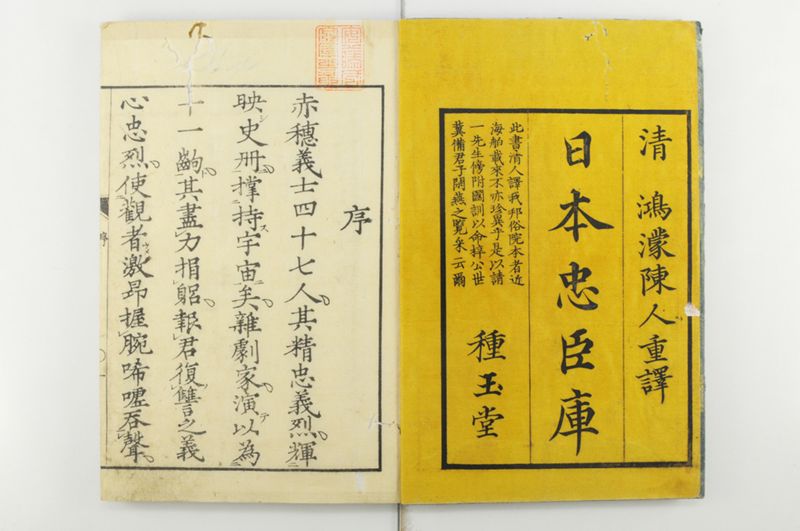 清 鴻濛陳人重譯
日本忠臣庫
此書清人譯我邦俗院本者近
海舶載來不亦珍異乎是以請
一先生傍附國訓以命梓公世
冀備君子閑燕之覧采云爾
種玉堂
序
赤穗義士四十七人其精忠義烈輝
映史册撑持宇宙矣雜劇家演以為
十一齣其盡力捐躳報君復讐之義
心忠烈使觀者激昂握腕唏噓吞聲
序